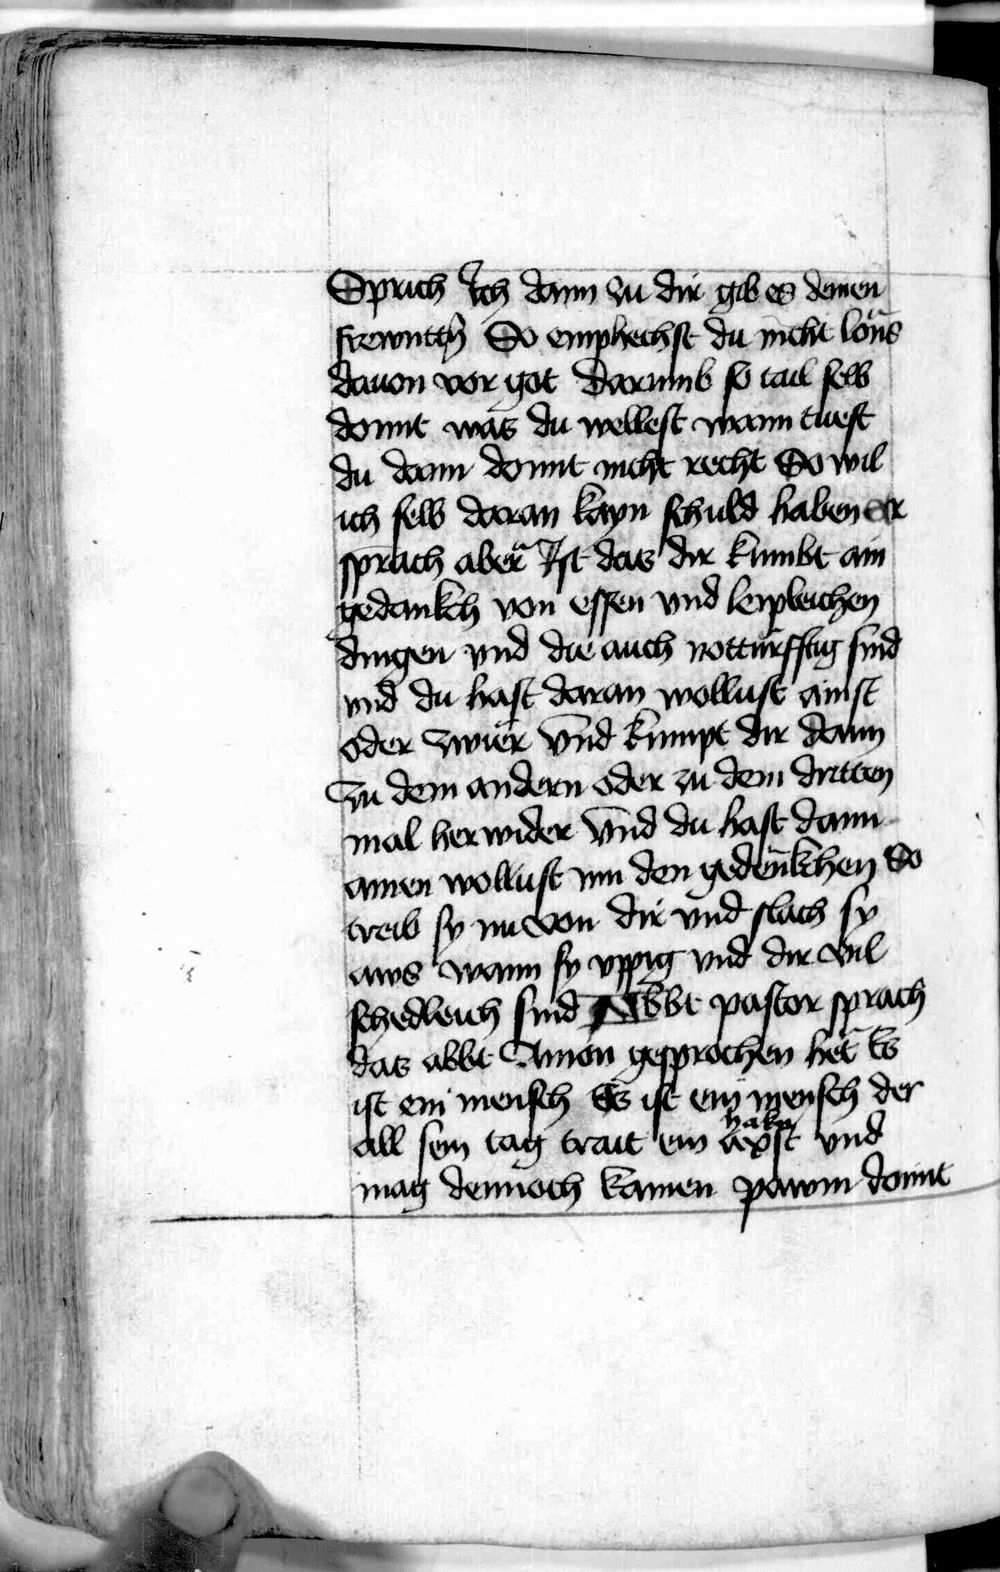 Sprich Ich dann zu dir gib es deinen
frewnttn So emphechst du nicht lons
dauon vor got Darumb so tail selb
domit was du wellest wann tuest
du dann domit nicht recht So wil
ich selb daran kayn schuld haben Er
sprach aber Ist das dir kumbt ain
gedankch von essen vnd leypleichen
dingen vnd die auch notturfftig sind
vnd du hast daran wollust ainst
oder zwier Vnd kumpt dir dann
zu dem andern oder zu dem dritten
mal herwider Vnd du hast dann
ainen wollust inn den gedenkchen So
treib sy nu von dir vnd slach sy
aws wann sy vppig vnd dir vil
schedleich sind Abbt pastor sprach
das abbt Amon gesprochen het Es
ist ein mensch Es ist ein mensch der
all sein tag trait ein axst hakn vnd
mag dennoch kainen pawm domit